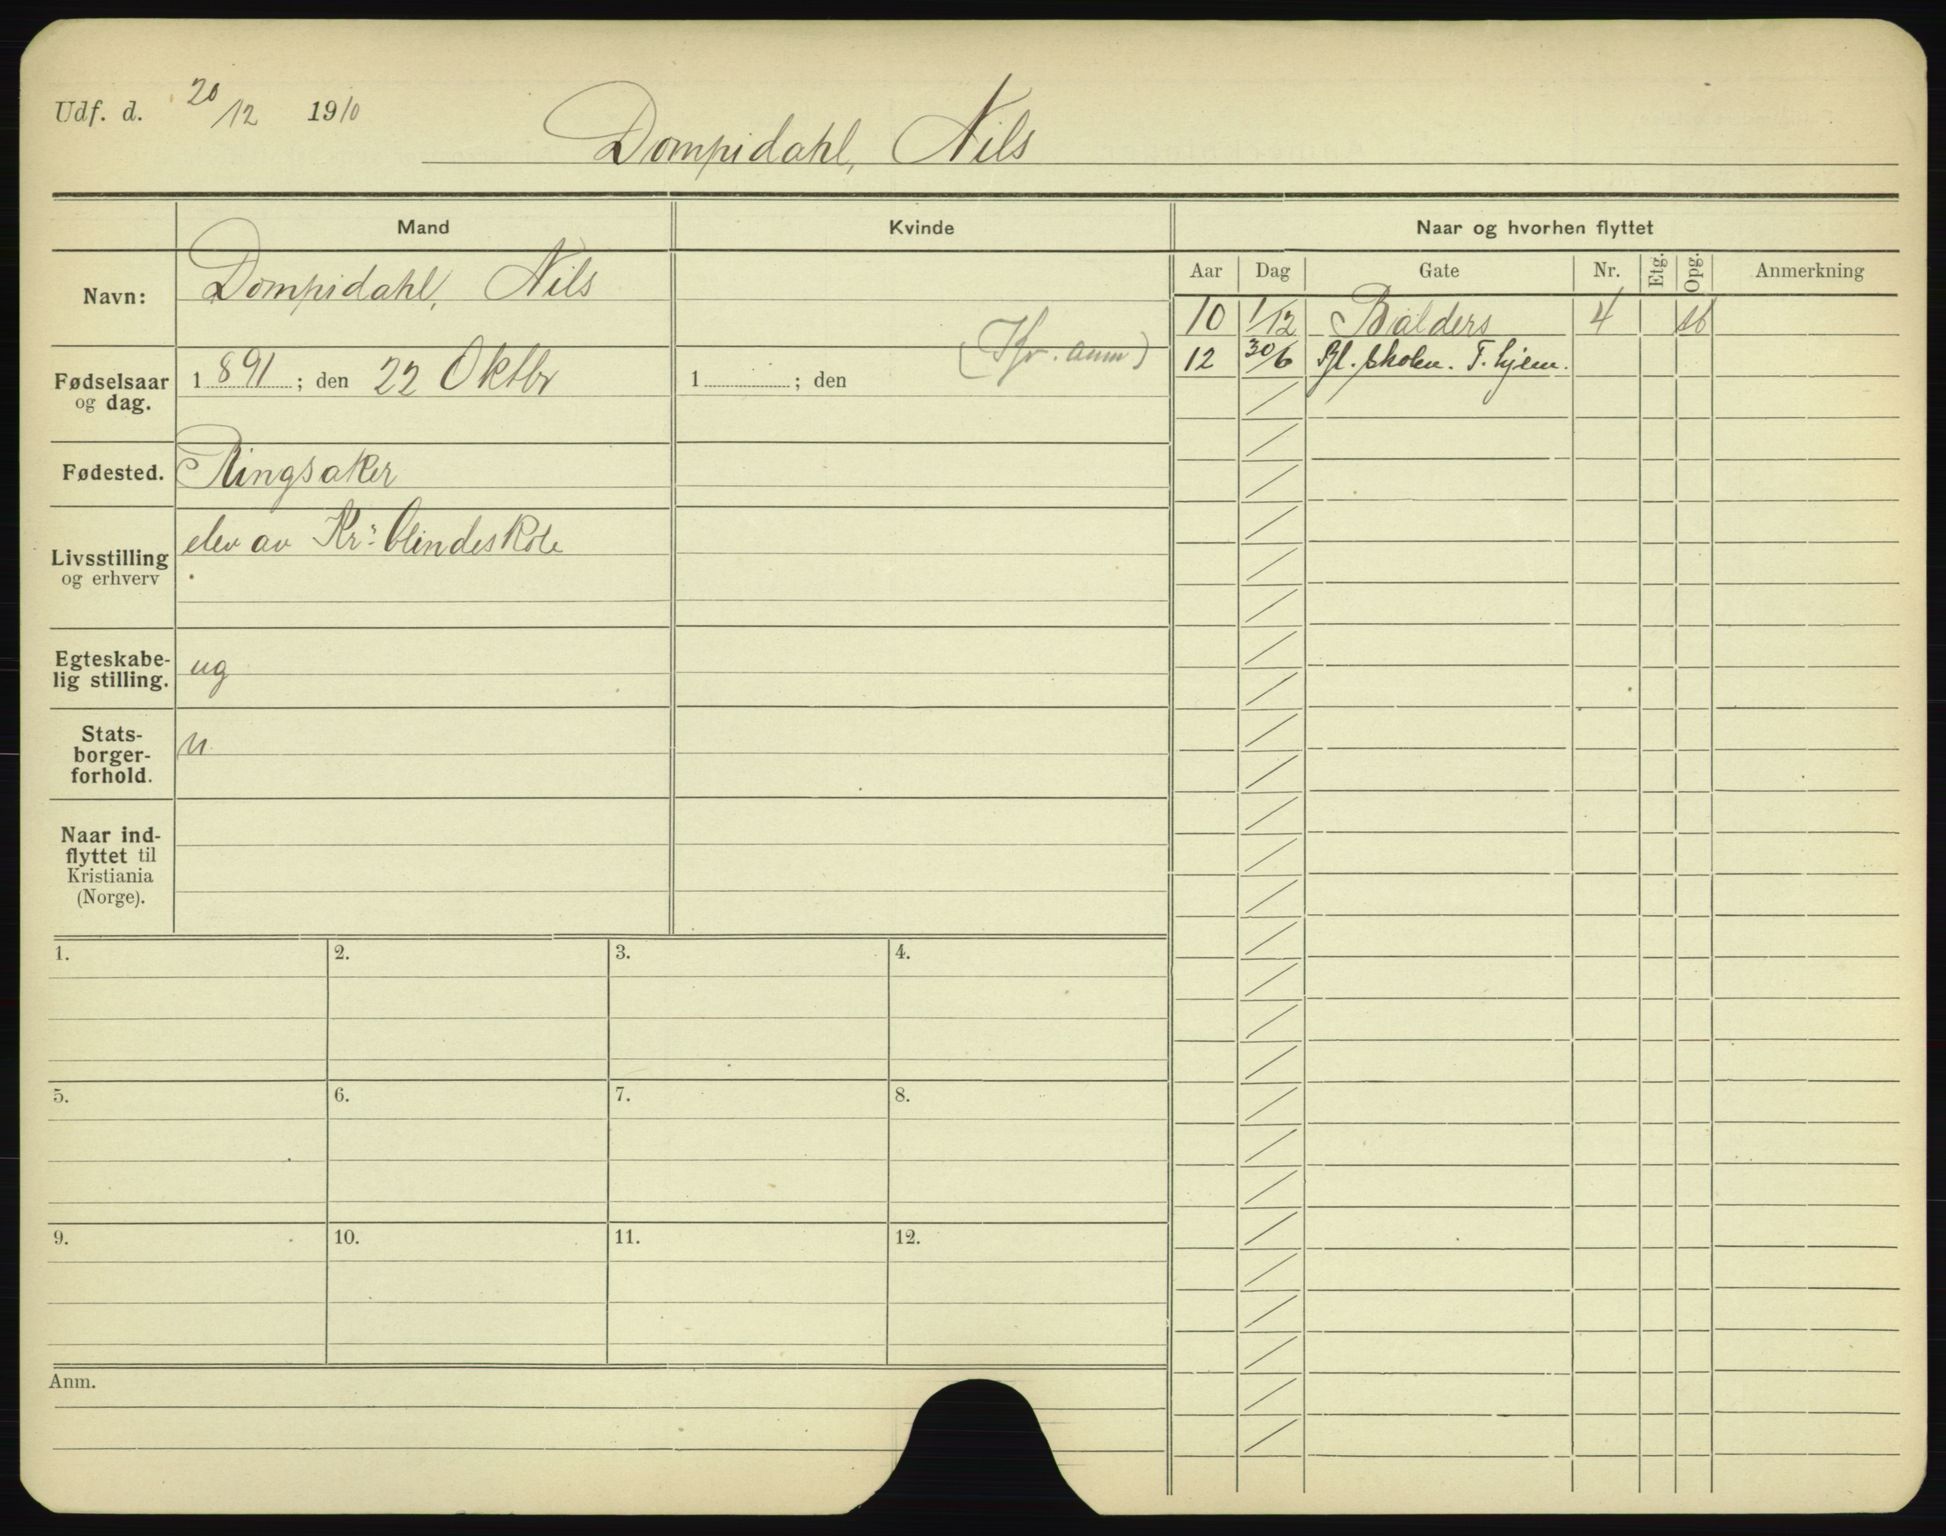 Udf. d. 20/12 1910
Dompidahl, Nils
Mand
Kvinde
Naar og hvorhen flyttet
Navn:
Dompidahl, Nils
Aar
Dag
Gate
Nr.
Etg.
Opg.
Anmerkning
10 1/12 Balders 4
12 30/6 Bl. skolen. T. hjem.
Fødselsaar
og dag.
1891; den 22 Oktbr
1 ; den
Fødested.
Ringsaker
Livsstilling
og erhverv
elev av Kr: blindeskole
Egteskabe-
lig stilling.
ug
Stats-
borger-
forhold.
n
Naar ind-
flyttet til
Kristiania
(Norge).
1. 2. 3. 4.
5. 6. 7. 8.
9. 10. 11. 12.
Anm.